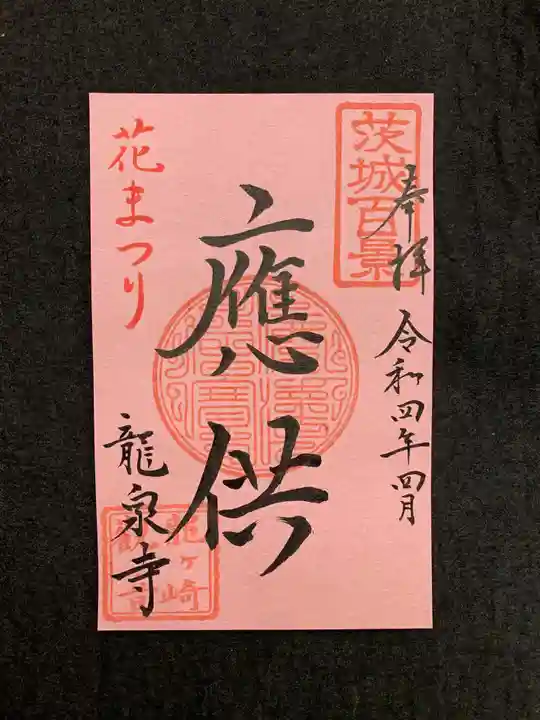 茨城百景
奉拝 令和四年四月
應供
花まつり
龍泉寺
龍ヶ崎
観音